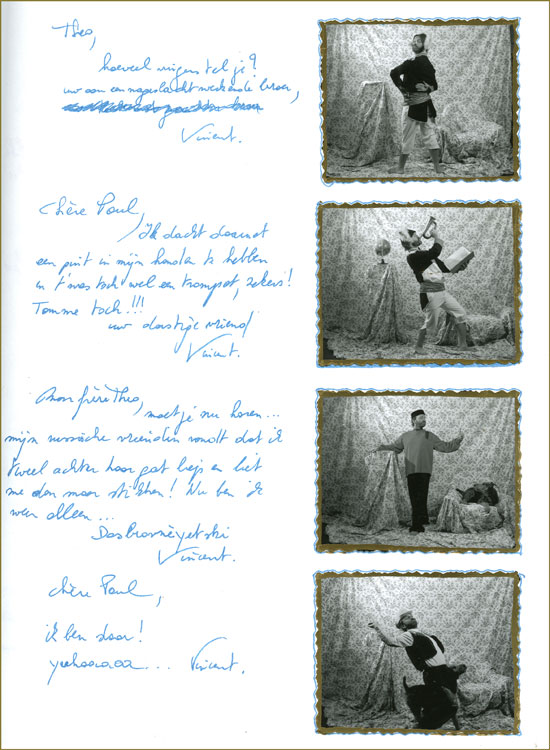 Theo,
hoeveel vingers tel je?
uw aan een nageslacht werkende broer,
Vincent.
Chère Paul,
Ik dacht daarnet
een pint in mijn handen te hebben
en t'was toch wel een trompet, zekers!
Tomme toch!!!
uw dorstige vriend
Vincent.
Mon frère Theo,
moet je nu horen...
mijn russische vriendin vondt dat ik
teveel achter haar gat liep en liet
me dan maar stikken! Nu ben ik
weer alleen...
Vincent.
Chère Paul,
ik ben daar!
yoehoeaaaa... Vincent.